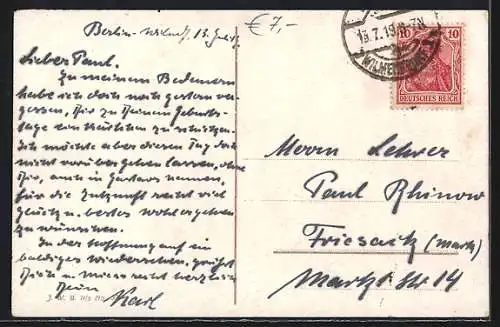 Berlin-Wilm., 13. Juli
€ 7,-
Lieber Paul.
Zu meinem Bedauern
habe ich doch noch gestern ver-
gessen, Dir zu Deinem Geburts-
tage ein Kärtchen zu schicken.
Ich möchte aber diesen Tag doch
nicht vorübergehen lassen, ohne
Dir, auch in Gustavs Namen,
für die Zukunft recht viel
Glück u. bestes Wohlergehen
zu wünschen.
In der Hoffnung auf ein
baldiges Wiedersehen, grüßt
Dich u. Mieze recht herzlich
Dein
Karl
7.19. 8-7N
WILMERSDORF 1
10 10
DEUTSCHES REICH
Herrn Lehrer
Paul Rhinow
Friesack (Mark)
Markt Str 14